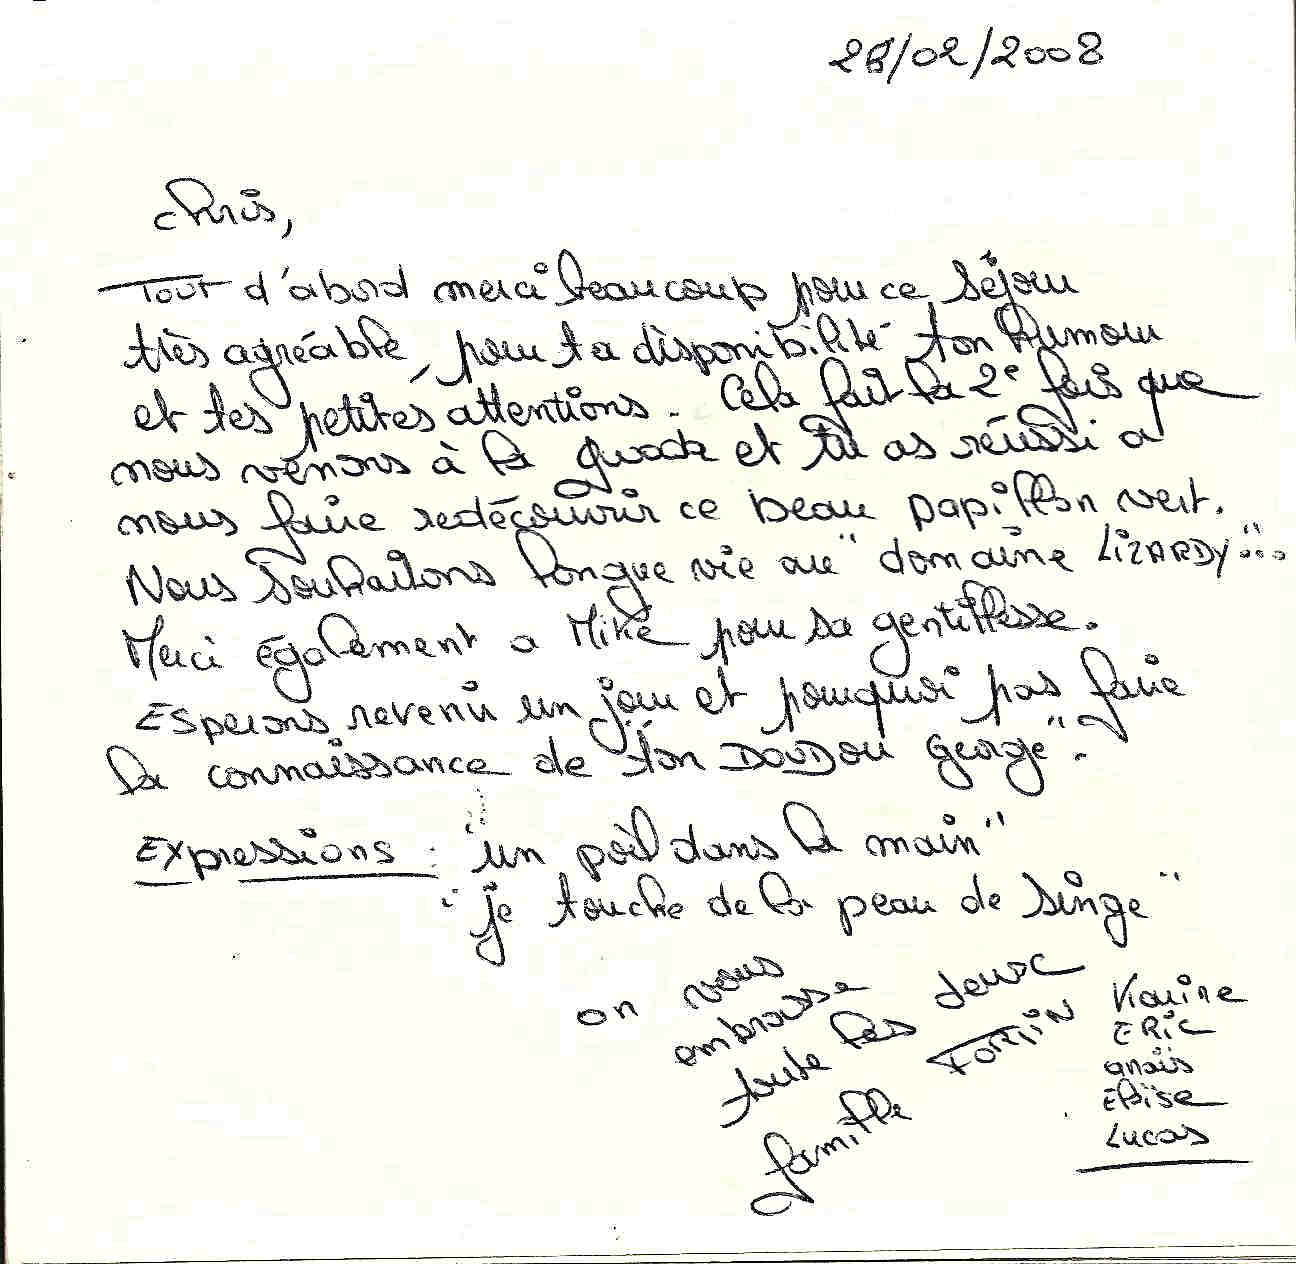 28/02/2008
Chris,
Tout d'abord merci beaucoup pour ce séjour
très agréable, pour ta disponibilité ton humour
et tes petites attentions. Cela fait la 2e fois que
nous venons à la Guada et tu as réussi a
nous faire redécouvrir ce beau papillon vert.
Nous souhaitons longue vie au "domaine LIZARDY"...
Merci également a Mike pour sa gentillesse.
Esperons revenir un jour et pourquoi pas faire
la connaissance de "ton DOUDOU George".
Expressions : "un poil dans la main"
"je touche de la peau de singe"
on vous
embrasse
toute les deux
famille FORTIN
ERIC
Anaïs
Eloïse
Lucas